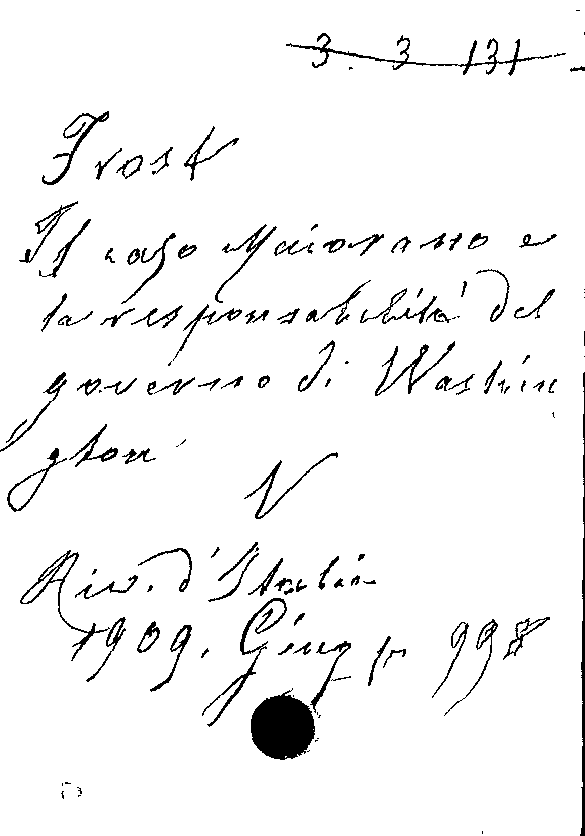 3. 3 131
Frost
Il caso Maiorano e
la responsabilità del
governo di Washin
gton
V
Riv. d'Italia
1909. Giug p. 998